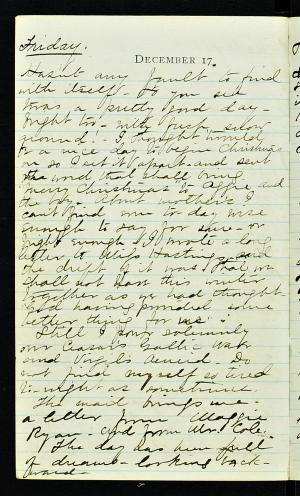 Friday.
DECEMBER 17.
Hasn't any fault to find
with itself. So you see
'twas a pretty good day
bright too - with fresh snow
around! - I thought it would
be a nice day to begin Christmas
in so I set it apart - and sent
the word that shall bring
"Merry Christmas" to Aggie, and
the boy. About mother's I
can't find me to day wise
enough to say for sure - or
right enough. I wrote a long
letter to Miss Hastings, and
the drift of it was that we
shall not pass this winter
together as we had thought -
God having provided some
better thing for us.
Still I pour solemnly
over Caesar's Gallic War
and Virgil's Aeneid. Do
not find myself so tired
to-night as sometimes.
The mail brings me -
a letter from Maggie
Ryan - and from Mrs. Cole.
The day has been full
of dreams - looking back-
ward -